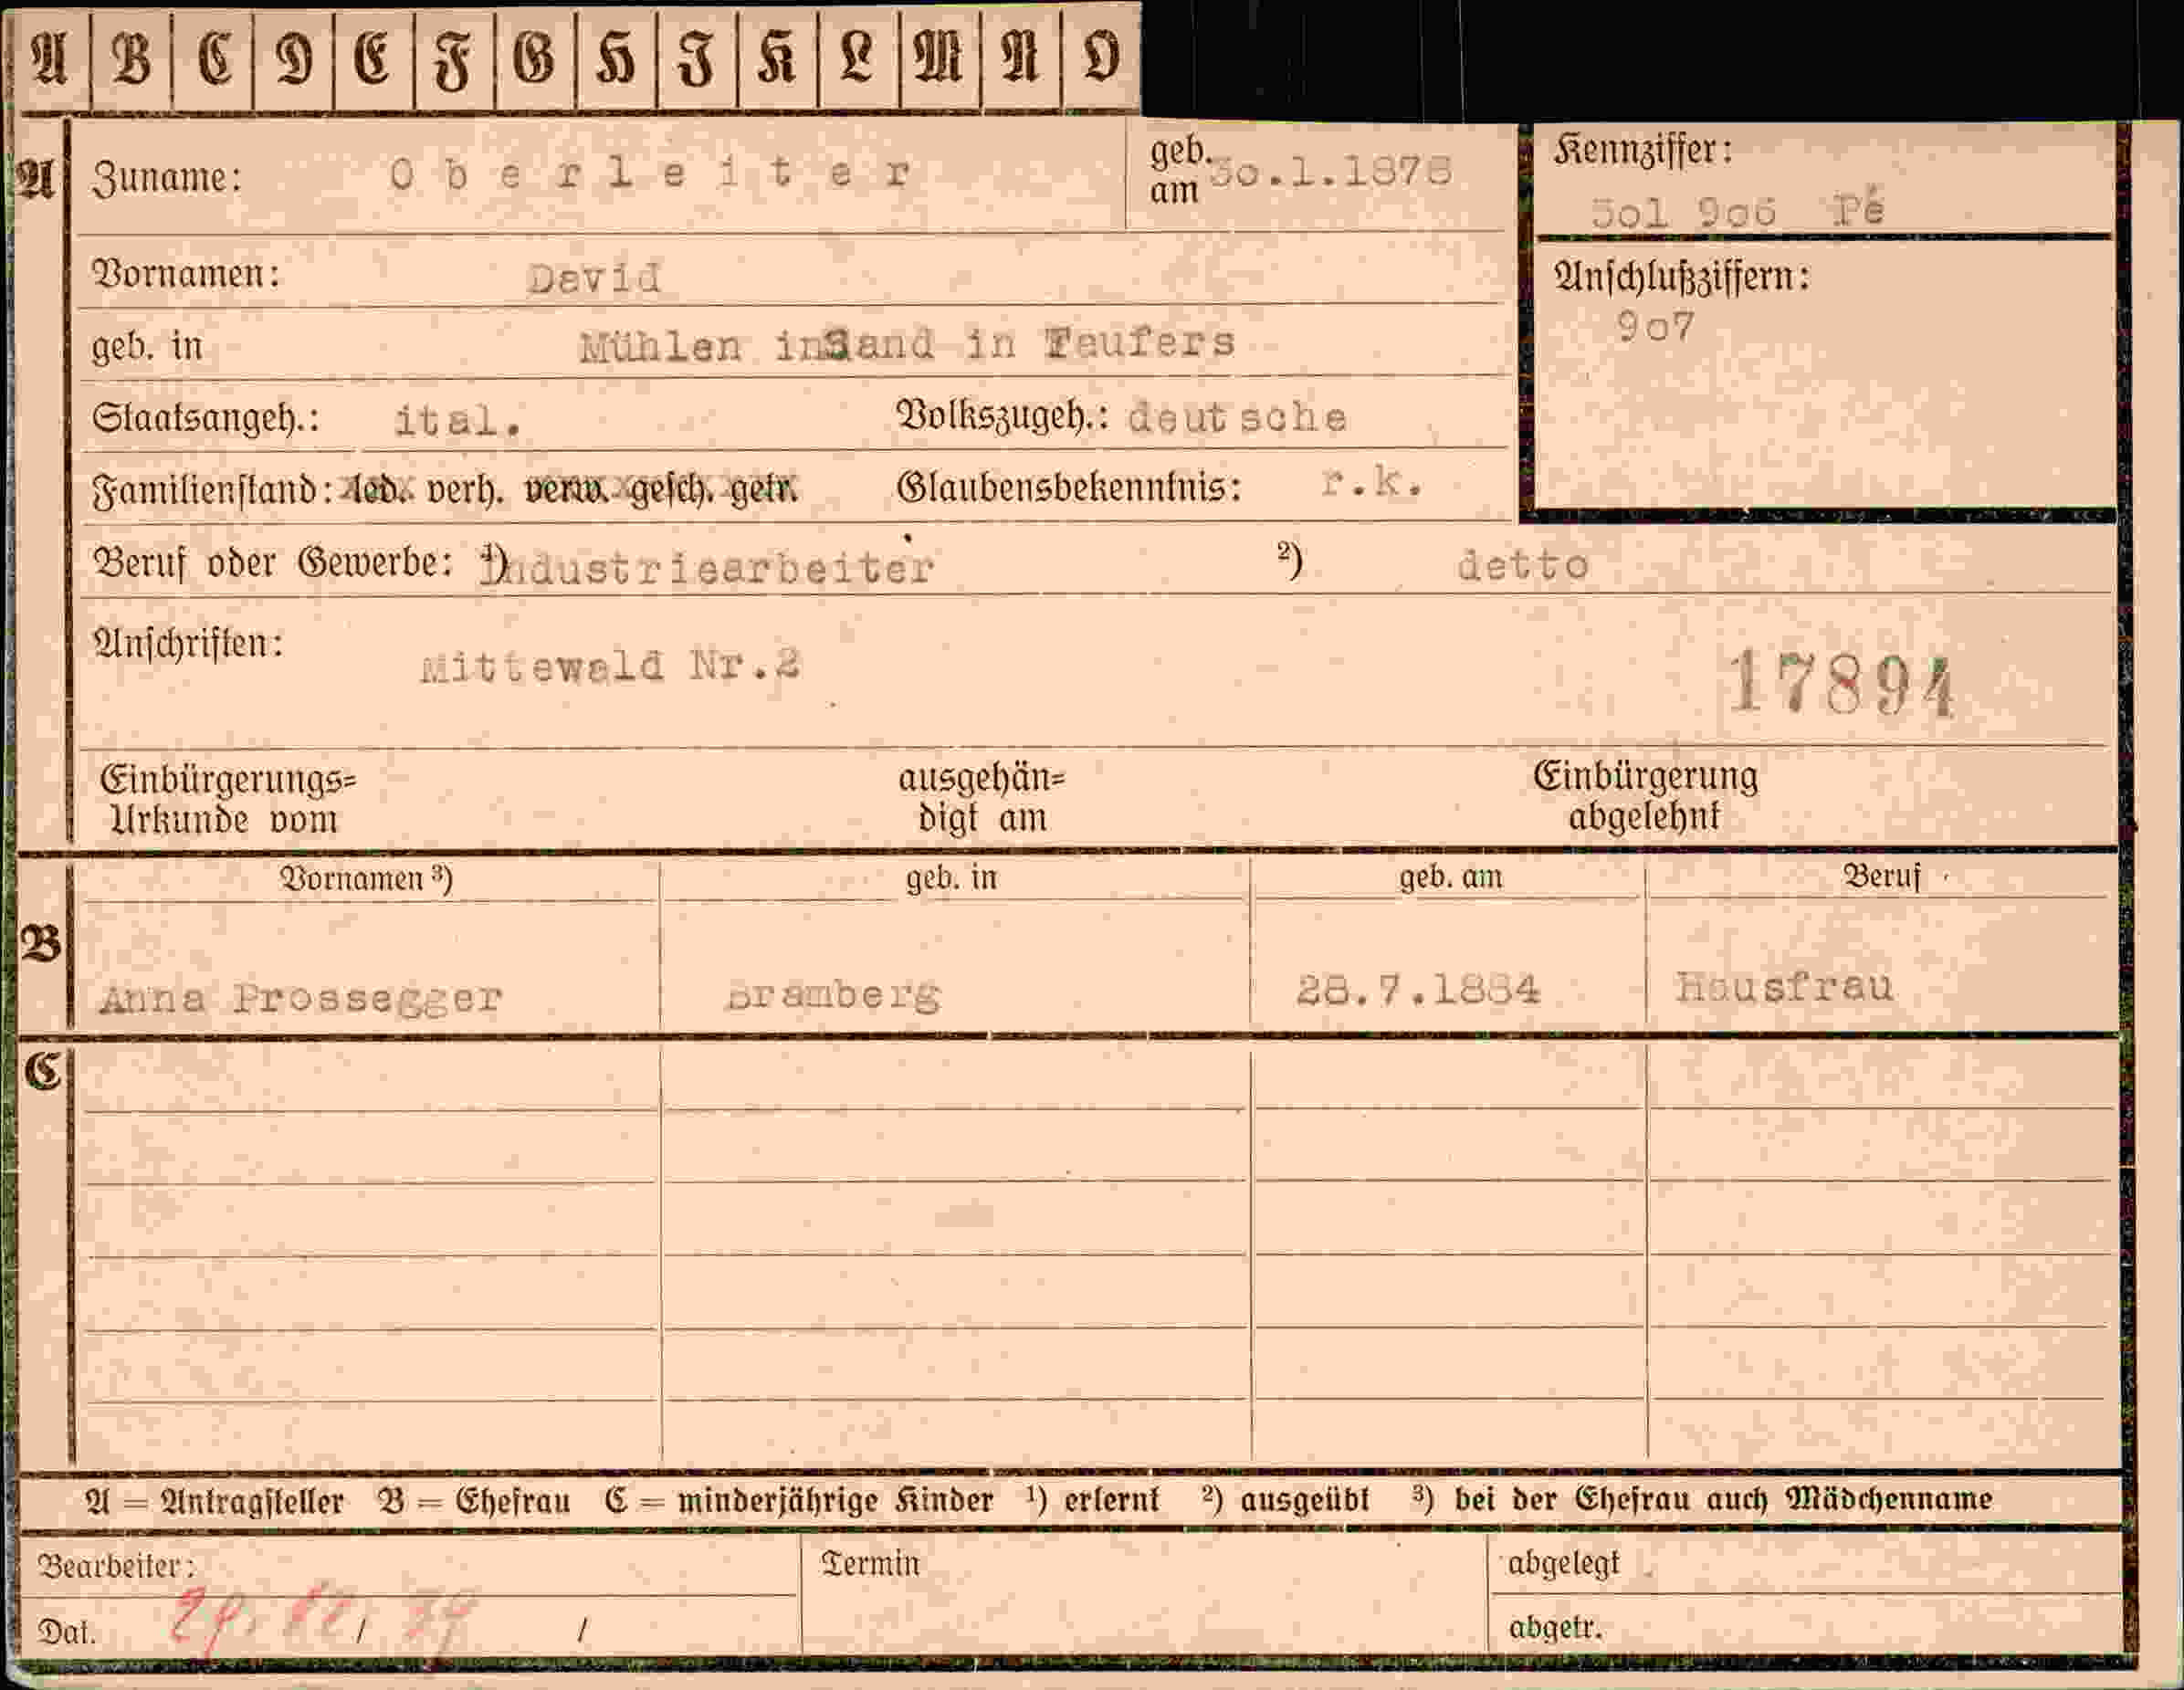 A B C D E F G H I K L M N O
A Zuname: Oberleiter geb. am 30.1.1878
Kennziffer:
301 906 Pé
Vornamen: David
Anschlußziffern:
907
geb. in Mühlen in Sand in Taufers
Staatsangeh.: ital. Volkszugeh.: deutsche
Familienstand: led. verh. verw. gesch. getr. Glaubensbekenntnis: r.k.
Beruf oder Gewerbe: 1) Industriearbeiter 2) detto
Anschriften: Mittewald Nr.2
17894
Einbürgerungs= ausgehän= Einbürgerung
Urkunde vom digt am abgelehnt
Vornamen ³) geb. in geb. am Beruf
B
Anna Prossegger Bramberg 28.7.1884 Hausfrau
C
A = Antragsteller B = Ehefrau C = minderjährige Kinder ¹) erlernt ²) ausgeübt ³) bei der Ehefrau auch Mädchenname
Bearbeiter: Termin abgelegt
Dat. / / abgetr.